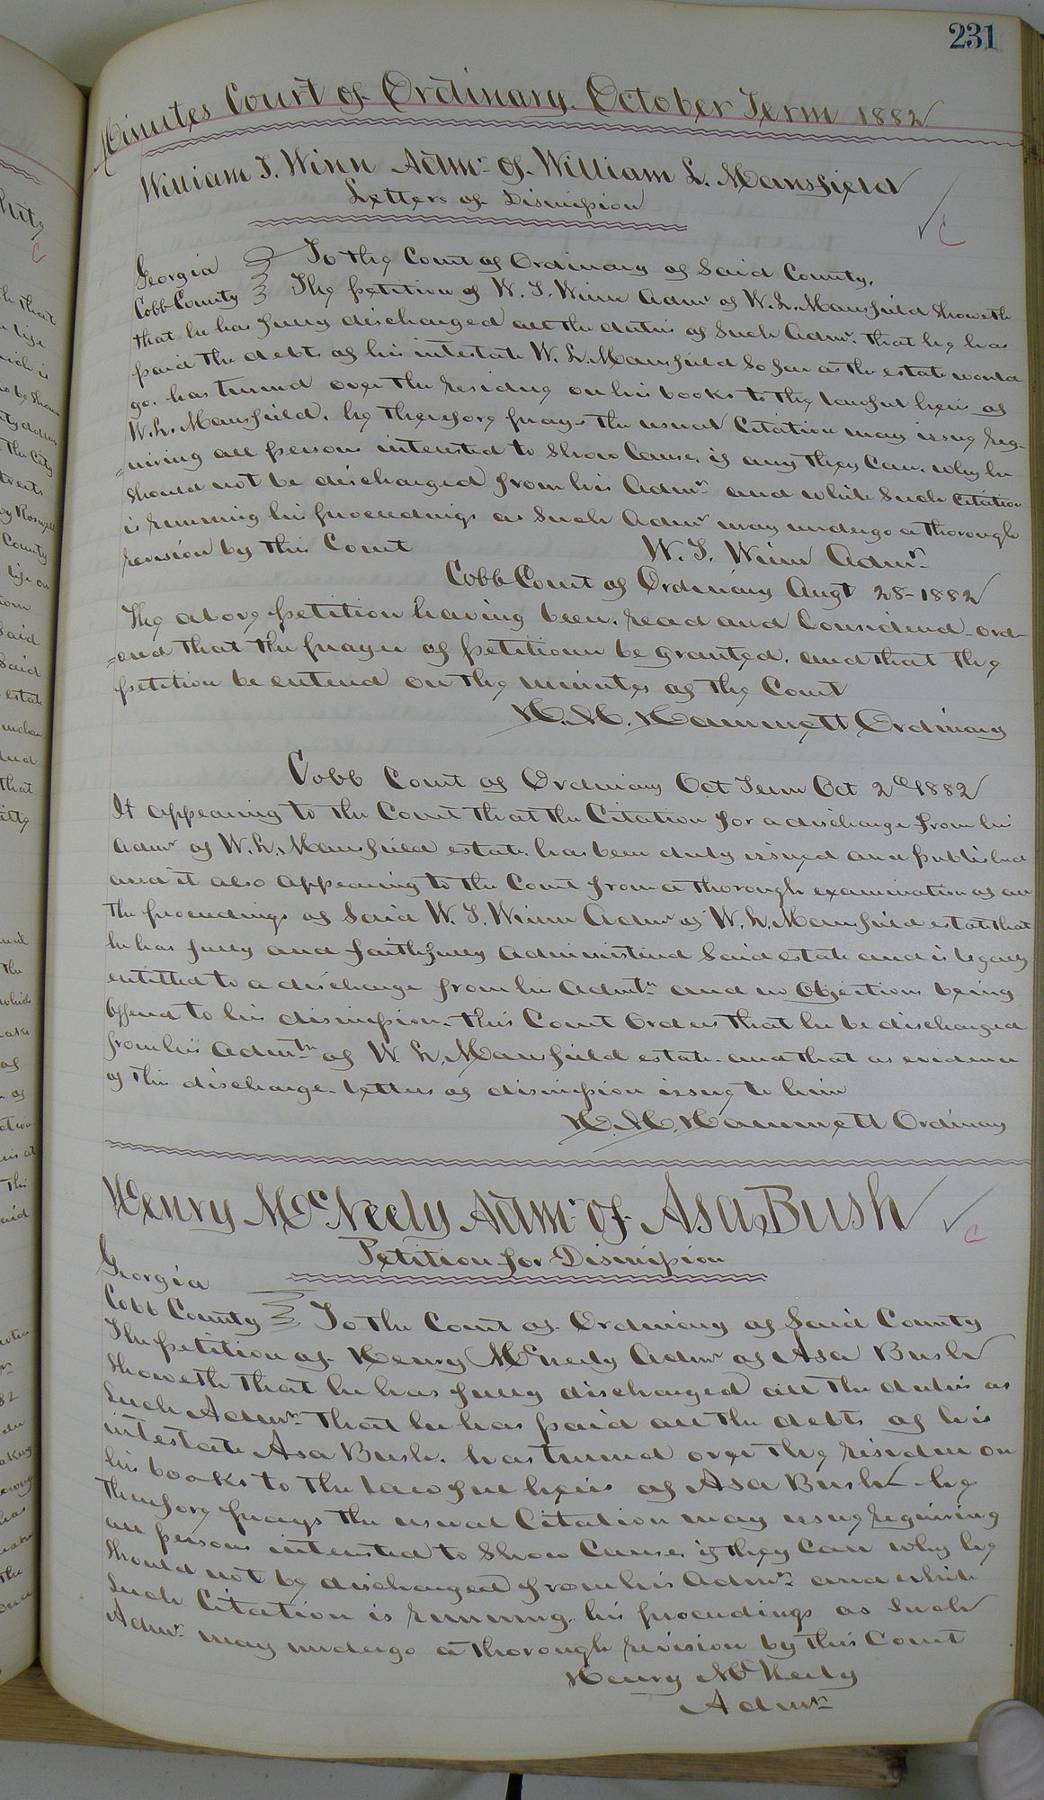 231
Minutes Court of Ordinary. October Term 1882
William J. Winn Admr. of William L. Mansfield
Letters of Dismission
Georgia
To the Court of Ordinary of Said County,
Cobb County The petition of W. J. Winn Admr of W. L. Mansfield Showeth
that he has fully discharged all the duties of Such Admr. that he has
paid the debts of his intestate W. L. Mansfield So far as the estate would
go. has turned over the residue on his books to the lawful heirs of
W. L. Mansfield. he therefore prays the usual Citation may issue req-
=uiring all persons interested to Show Cause, if any they Can. why he
Should not be discharged from his Admn. and while Such Citation
is running his proceedings as Such Admr may undergo a thorough
revision by this Court
W. J. Winn Admr.
Cobb Court of Ordinary Augt 28-1882
The above petition having been. read and Considered ord-
=ered that the prayer of petitioner be granted. and that the
petition be entered on the minutes of the Court
H. M. Hammett Ordinary
Cobb Court of Ordinary Oct Term Oct 2d 1882
It appearing to the Court that the Citation for a discharge from his
Admr of W. L. Mansfield estate. has been duly issued and published
and it also appearing to the Court from a thorough examination of all
the proceedings of Said W. J. Winn Admr of W. L. Mansfield estate that
he has fully and faithfully administered Said estate and is legally
entitled to a discharge from his Admtn and no Objections being
Offered to his dismission. this Court Orders that he be discharged
from his Admtn of W. L. Mansfield estate. and that as evidence
of this discharge. letters of dismission issue to him
H. M. Hammett Ordinary
Henry McNeely Admr. of Asa Bush
Petition for Dismission
Georgia
Cobb County To the Court of Ordinary of Said County
The petition of Henry McNeely Admr of Asa Bush
Showeth that he has fully discharged all the duties as
Such Admr. that he has paid all the debts of his
intestate Asa Bush. has turned over the residue on
his books to the lawful heirs of Asa Bush he
therefore prays the usual Citation may issue requiring
all persons interested to Show Cause, if they Can why he
Should not be discharged from his Admn. and while
Such Citation is running. his proceedings as Such
Admr. may undergo a thorough revision by this Court
Henry McNeely
Admr